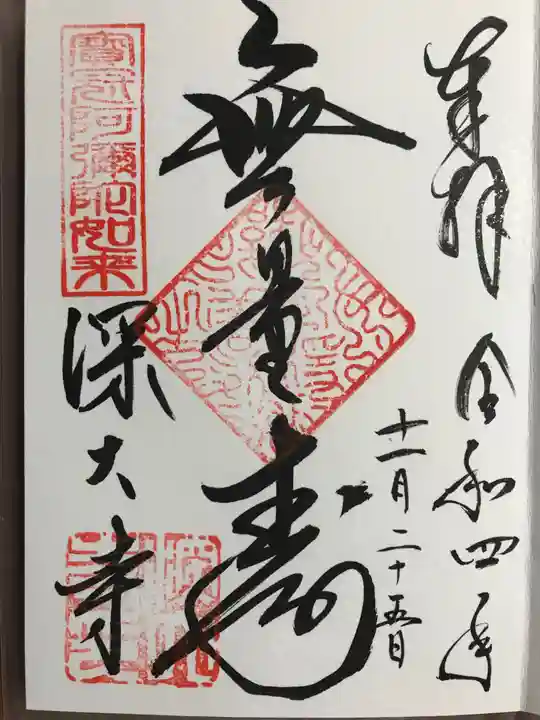 奉拝
令和四年
十一月二十五日
無量寿
寳冠阿彌陀如来
深大寺